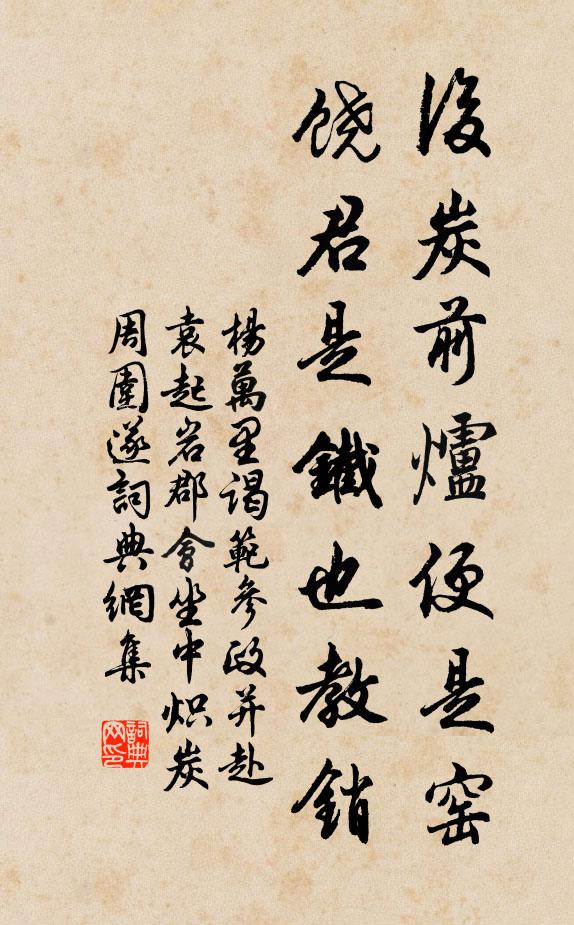 後炭前爐便是窑
饒君是鐵也教銷
楊萬里謁範參政并赴
袁起岩郡會坐中炽炭
周圍遂詞典網集
詞典网印